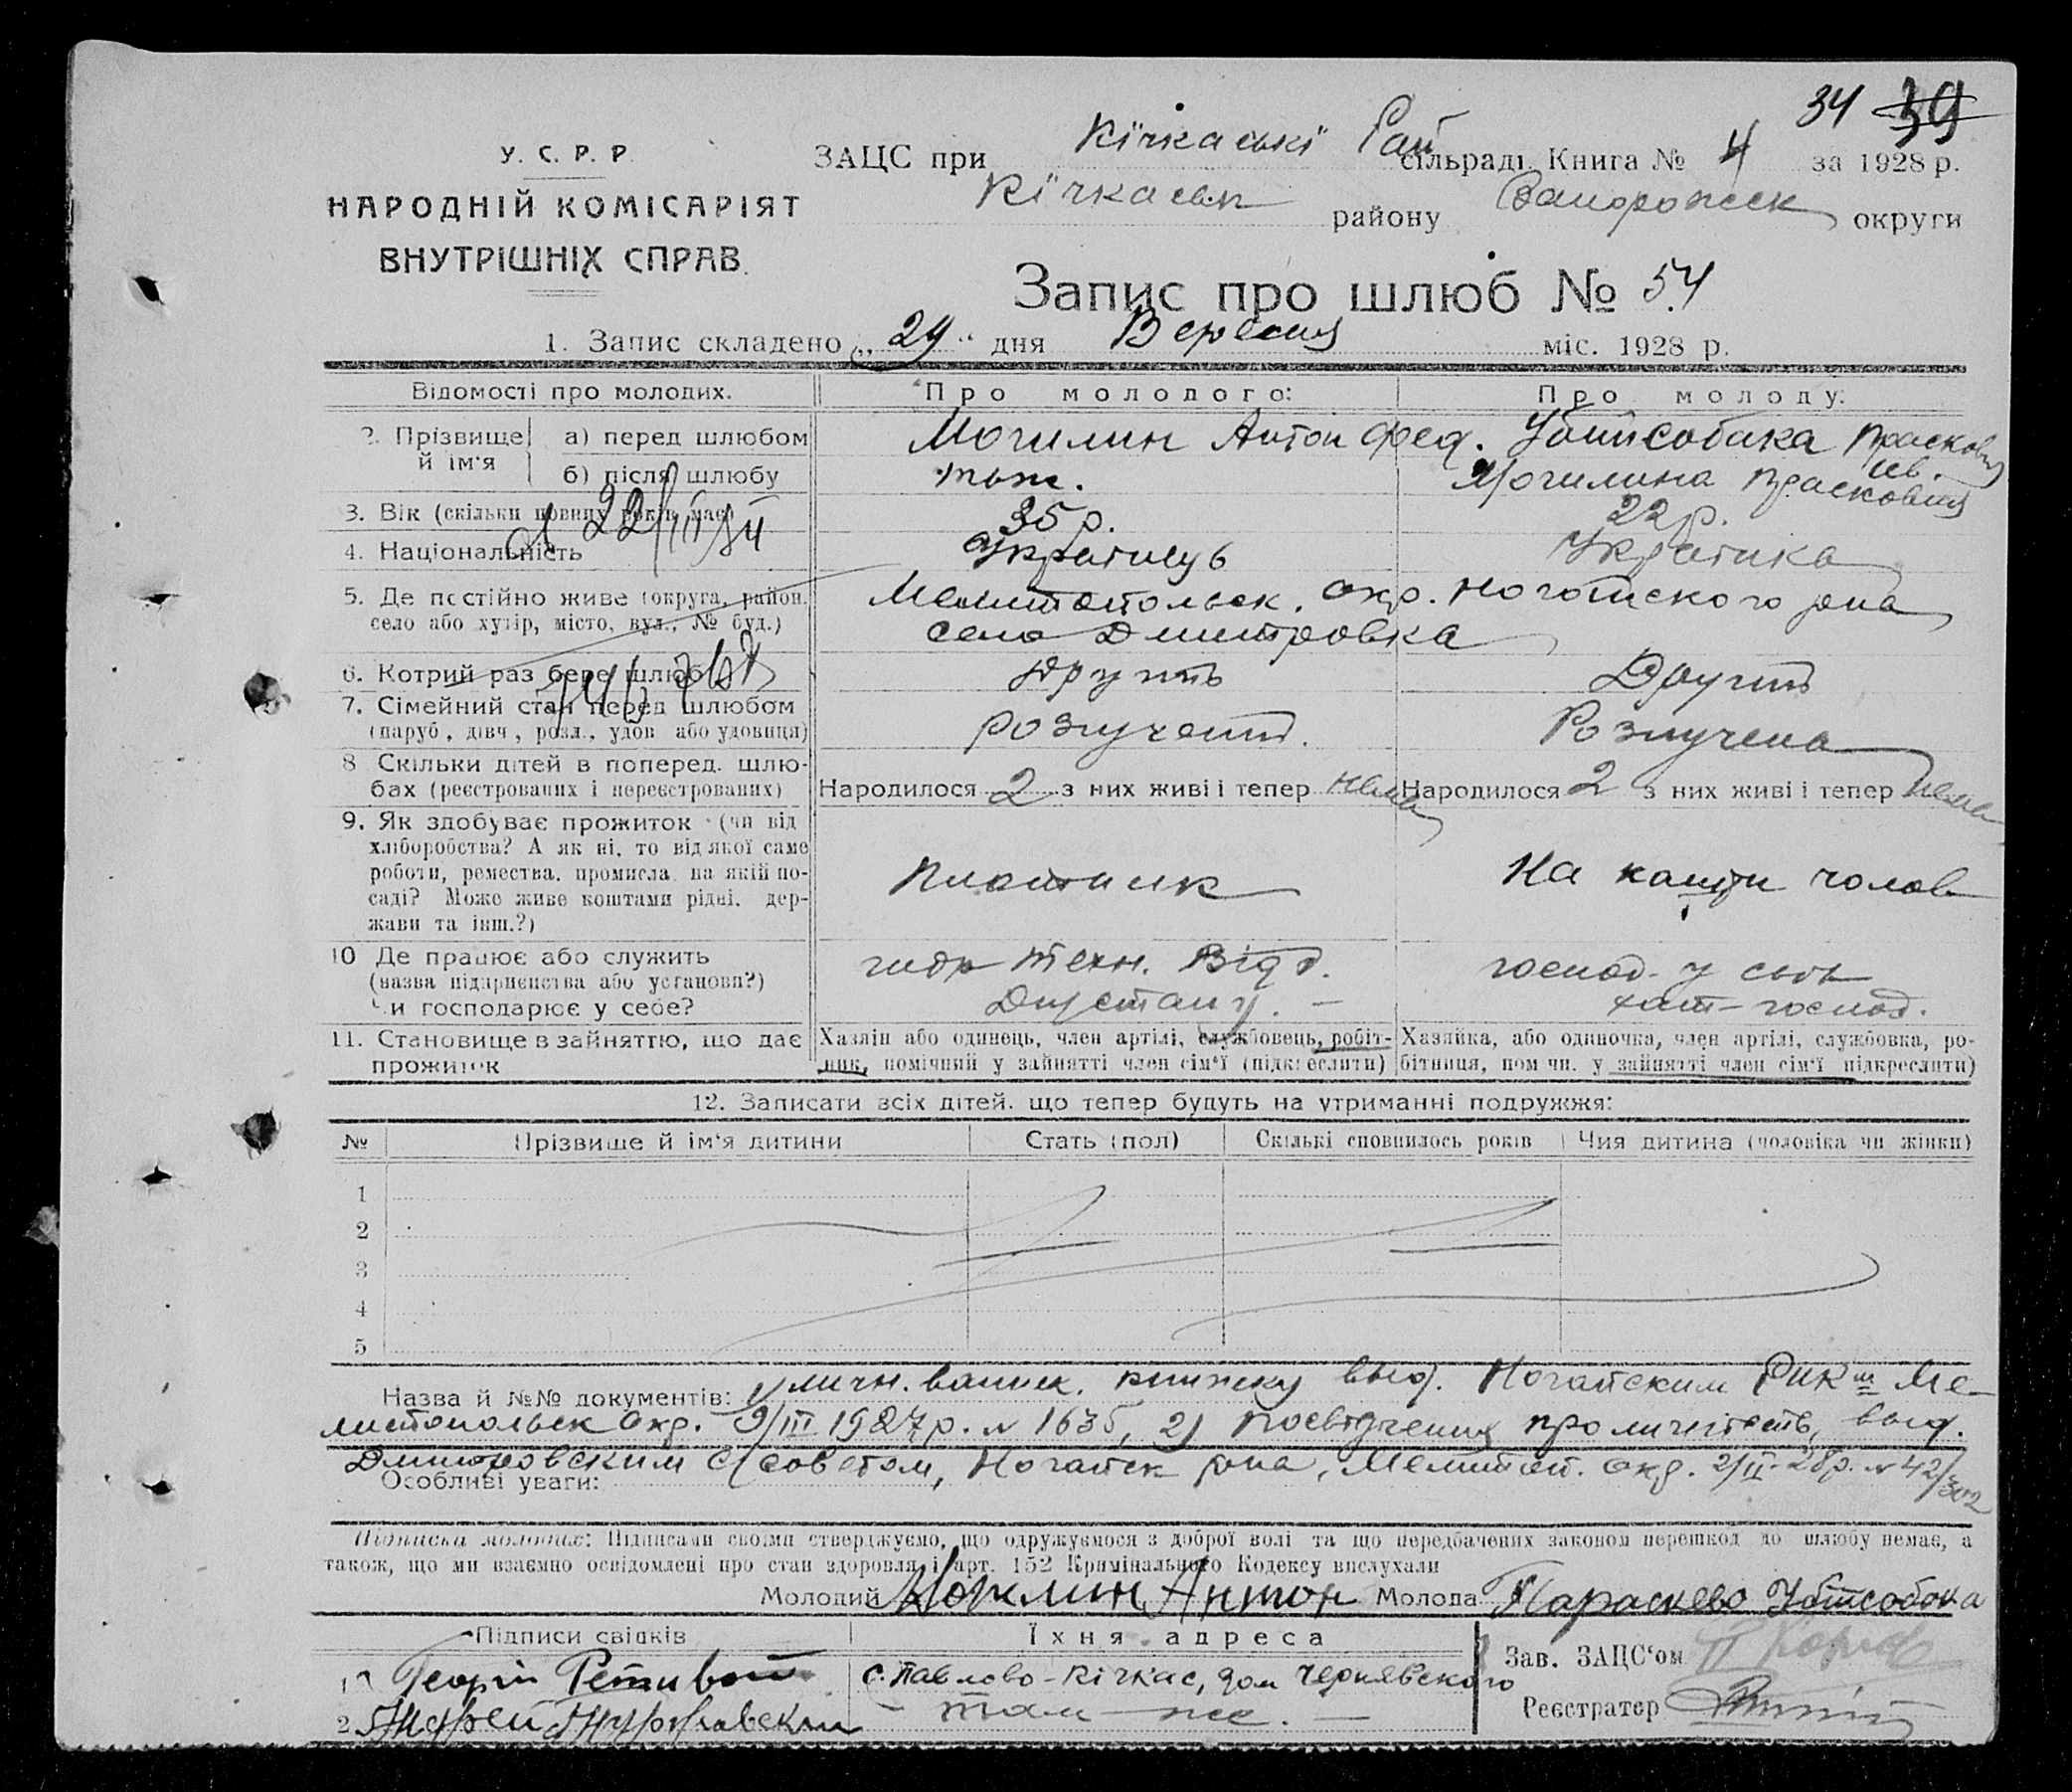 34 39
У. С. Р. Р.
НАРОДНІЙ КОМІСАРІЯТ
ВНУТРІШНІХ СПРАВ.
ЗАЦС при Кічкаські Рай сільраді. Книга № 4 за 1928 р.
Кічкаськ району Запорожск округи
Запис про шлюб № 54
1. Запис складено „ 29 “ дня Вересня міс. 1928 р.
Відомості про молодих. Про молодого: Про молоду:
2. Прізвище й ім'я а) перед шлюбом Могилин Антон Фед. Убийсобака Прасковия Ив.
б) після шлюбу тож. Могилина Прасковия
3. Вік (скільки повних років має) 35 р. 22 р.
22/III
4. Національність Українць Українка
5. Де постійно живе (округа, район, Мелитопольск. окр. Ногайского рна
село або хутір, місто, вул., № буд.) село Дмитровка
6. Котрий раз бере шлюб Другий Другий
7. Сімейний стан перед шлюбом Розлучений. Розлучена
(паруб., дівч., розл., удов. або удовиця)
8 Скільки дітей в поперед. шлю-
бах (реєстрованих і нереєстрованих) Народилося 2 з них живі і тепер нема Народилося 2 з них живі і тепер нема
9. Як здобуває прожиток (чи від
хліборобства? А як ні, то від якої саме
роботи, ремества, промисла, на якій по-
саді? Може живе коштами рідні, дер-
жави та інш.?) Плотник На кошти чолов
10 Де працює або служить гидро техн. Відд. господ. у своь
(назва підприємства або установи?)
Чи господарює у себе? хат-господ.
11. Становище в зайняттю, що дає
прожиток
Хазяїн або одинець, член артілі, службовець, робіт-
ник, помічний у зайнятті член сім'ї (підкреслити)
Хазяйка, або одиночка, член артілі, службовка, ро-
бітниця, помічн. у зайнятті член сім'ї підкреслити)
12. Записати всіх дітей, що тепер будуть на утриманні подружжя:
№ Прізвище й ім'я дитини Стать (пол) Скількі сповнилось років Чия дитина (чоловіка чи жінки)
1
2
3
4
5
Назва й №№ документів: личн. воинск. книжку выд. Ногайским Рик Ме-
литопольск окр. 9/III 1927 р. № 1635, 2) посвідчения про личність, выд.
Дмитровским с/советом, Ногайск рна, Мелитоп. окр. 2/II-28 р. № 42/302
Особливі уваги:
Підписка молодих: Підписами своїми стверджуємо, що одружуємося з доброї волі та що передбачених законом перешкод до шлюбу немає, а
також, що ми взаємно освідомлені про стан здоровля і арт. 152 Кримінального Кодексу вислухали
Молодий Могилин Антон Молода Параскева Убийсобака
Підписи свідків Їхня адреса
1. Георгій с. Павлово-Кічкас, дом Чернявского
2. там-же.
Зав. ЗАЦС'ом
Реєстратор